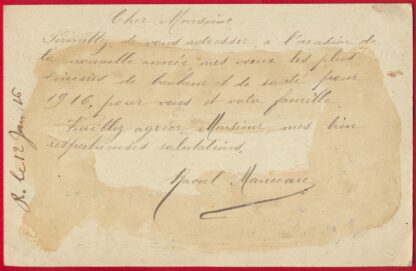 Cher Monsieur
Permettez de vous adresser, a l'occasion de
la nouvelle année mes voeux les plus
sincères de bonheur et de santé pour
1916, pour vous et votre famille.
Veuillez agréer, Monsieur, mes bien
respectueuses salutations.
Raoul Manceau
R. le 12 Jan. 16